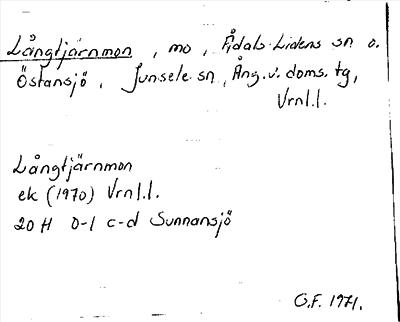 Långtjärnmon, mo, Ådals-Lidens sn o.
Östansjö, Junsele sn, Ång. v. doms. tg,
Vrnl.l.
Långtjärnmon
ek (1970) Vrnl.l.
20 H 0-1 c-d Sunnansjö
G.F. 1971.